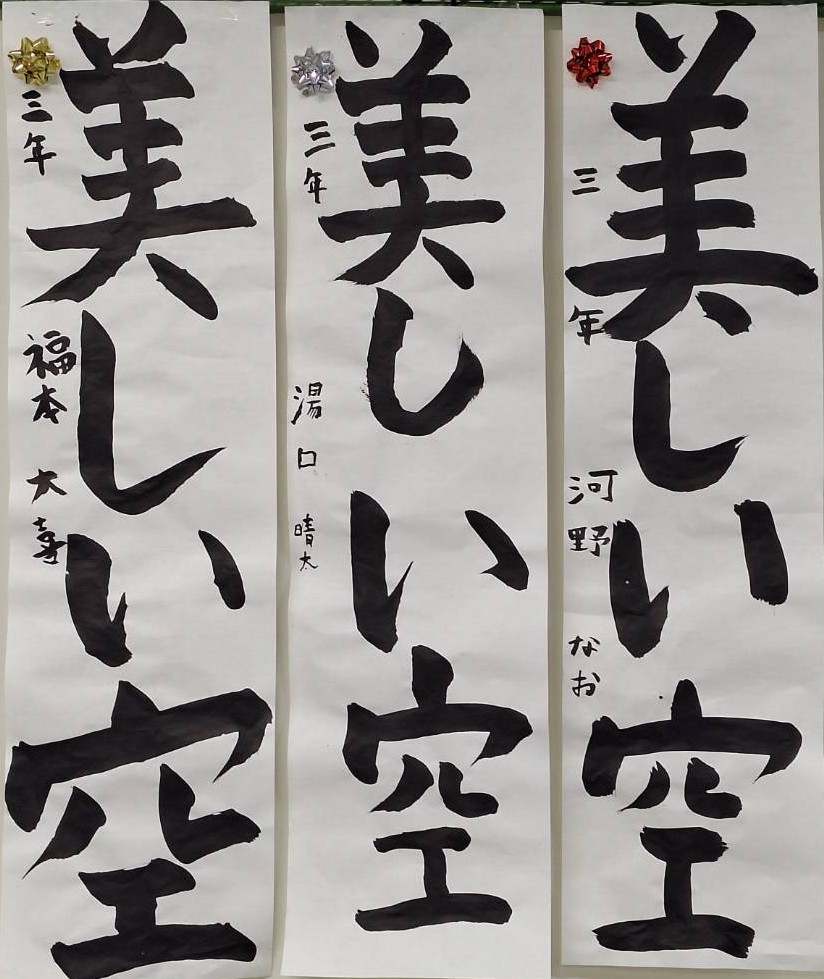 美しい空
三年 河野 なお
美しい空
三年 湯口 晴太
美しい空
三年 福本 大喜